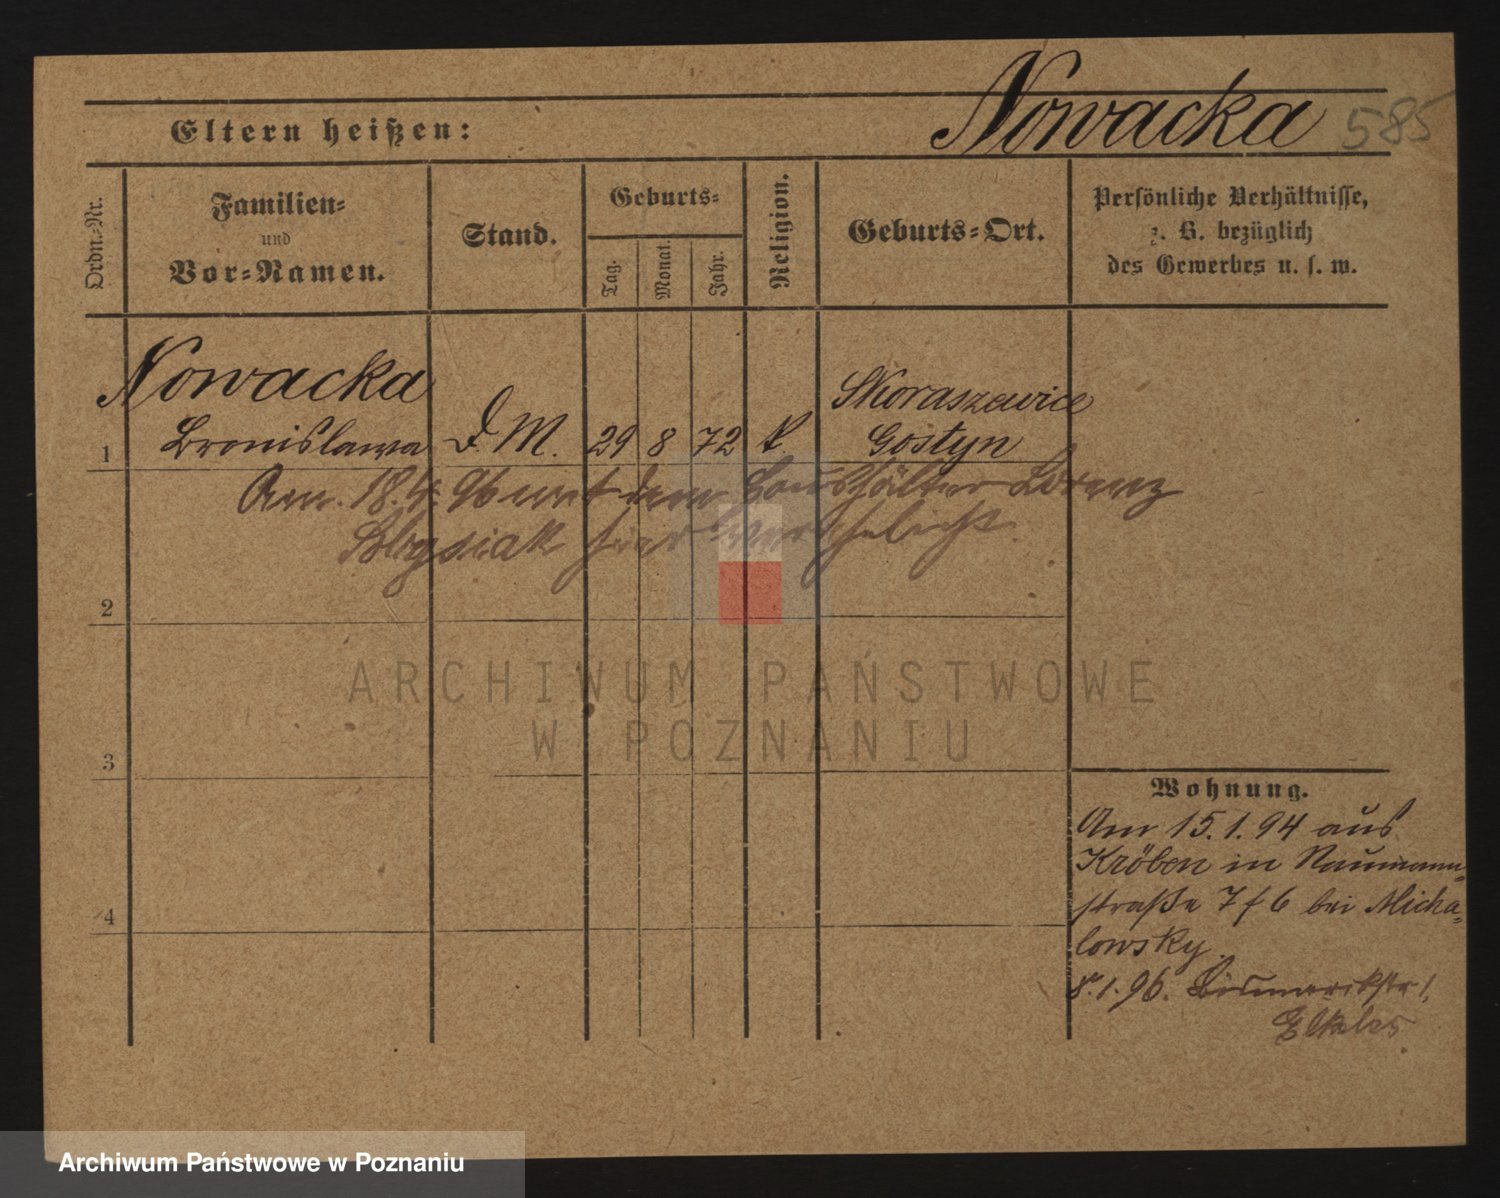 Nowacka 585
Eltern heißen:
Ordn.-Nr.
Familien-
und
Vor-Namen.
Stand.
Geburts-
Tag.
Monat.
Jahr.
Religion.
Geburts-Ort.
Persönliche Verhältnisse,
z. B. bezüglich
des Gewerbes u. s. w.
Nowacka
Skoraszewice
1 Bronislawa D. M. 29 8 72 k. Gostyn
Am 18.4.96 mit dem Haushälter Lorenz
hier verehelicht.
2
3
4
Wohnung.
Am 15.1.94 aus
Kröben in Naumann-
straße 7 f 6 bei Micha-
lowsky.
8.1.96. Bismarckstr 1,
Elkeles
ARCHIWUM PAŃSTWOWE
W POZNANIU
Archiwum Państwowe w Poznaniu